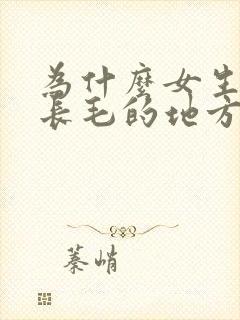 為什麼女生
長毛的地方
蓁峭